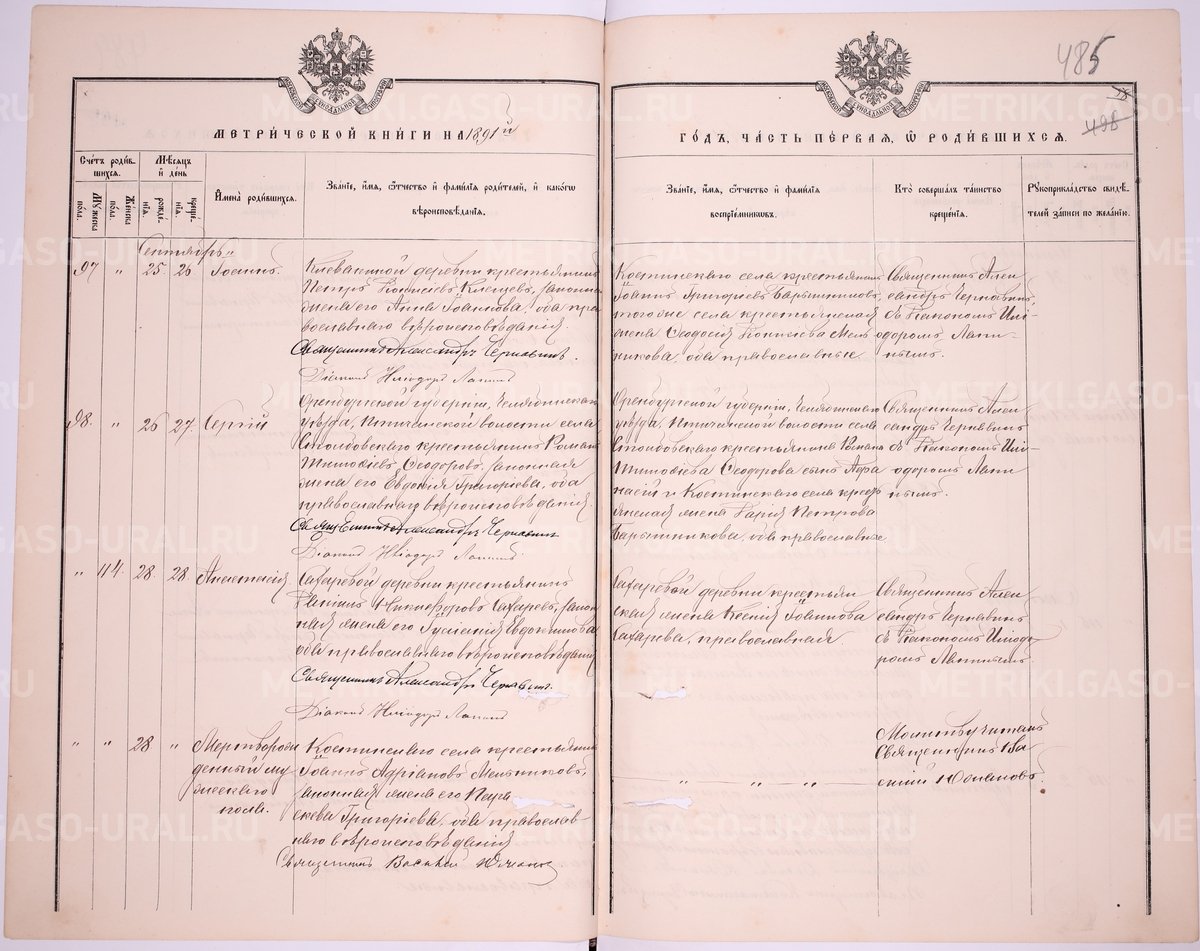 485
498
МЕТРИ́ЧЕСКОЙ КНИ́ГИ НА 1891й
ГО́ДЪ, ЧА́СТЬ ПЕ́РВАЯ, Ѡ РОДИ́ВШИХСѦ.
Сче́тъ роди́вшихся.
Мѣ́сяцъ и҆ де́нь
Му́жеска по́ла.
Же́нска по́ла.
рожде́нїѧ.
креще́нїѧ.
И҆мена̀ роди́вшихсѧ.
Зва́нїе, и҆́мѧ, ѻ҆́тчество и҆ фами́лїѧ роди́телей, и҆ како́гѡ вѣроисповѣ́данїѧ.
Зва́нїе, и҆́мѧ, ѻ҆́тчество и҆ фами́лїѧ воспрїе́мниковъ.
Кто̀ соверша́лъ та́инство креще́нїѧ.
Рꙋкоприкла́дство свидѣ́телей за́писи по жела́нїю.
Сентябрь
97 " 25. 26. Іоаннъ.
Клевакиной деревни крестьянинъ
Петръ Клещевъ, законная
жена его Анна Іоаннова, оба пра
вославнаго вѣроисповѣданія
Священникъ Александръ Чернавинъ.
Діаконъ Иліодоръ Лапинъ
Костинскаго села крестьянинъ
Іоаннъ Григорьевъ Барышниковъ,
тогоже села крестьянская
жена Ѳеодосія Мель
никова, оба православные
Священникъ Алек
сандръ Чернавинъ
съ Діакономъ Илі-
одоромъ Лапи-
нымъ.
98. " 26 27. Сергій
Оренбургской губерніи, Челябинскаго
уѣзда, Птичинской волости села
Столбовскаго крестьянинъ Романъ
Тимоѳеевъ Ѳеодоровъ, законная
жена его Евдокія Григорьева, оба
православнаго вѣроисповѣданія
Священникъ Александръ Чернавинъ
Діаконъ Иліодоръ Лапинъ
Оренбургской губерніи, Челябинскаго
уѣзда, Птичинской волости села
Столбовскаго крестьянина Романа
Тимоѳеева Ѳеодорова сынъ Аѳа
насій и Костинскаго села кресть
янская жена Дарія Петрова
Барышникова, оба православные
Священникъ Алек
сандръ Чернавинъ
съ Діакономъ Илі-
одоромъ Лапи
нымъ.
" 114. 28. 28. Анастасія.
Сохаревой деревни крестьянинъ
Никифоровъ Сохаревъ, закон
ная жена его Іуліанія Евдокимова
оба православнаго вѣроисповѣданія
Священникъ Александръ Чернавинъ.
Діаконъ Иліодоръ Лапинъ
Сохаревой деревни крестьян
ская жена Ксенія Іоаннова
Сохарева, православная
Священникъ Алек
сандръ Чернавинъ
съ Діакономъ Иліодо-
ромъ Лапинымъ
" " 28 " Мертворож
денный му
жескаго
пола.
Костинскаго села крестьянинъ
Іоаннъ Адріановъ Мельниковъ,
законная жена его Пара
скева Григорьева, оба православ
наго вѣроисповѣданія
Священникъ Василій
" " "
Молитву читалъ
Священникъ Ва
силій
METRIKI.GASO-URAL.RU